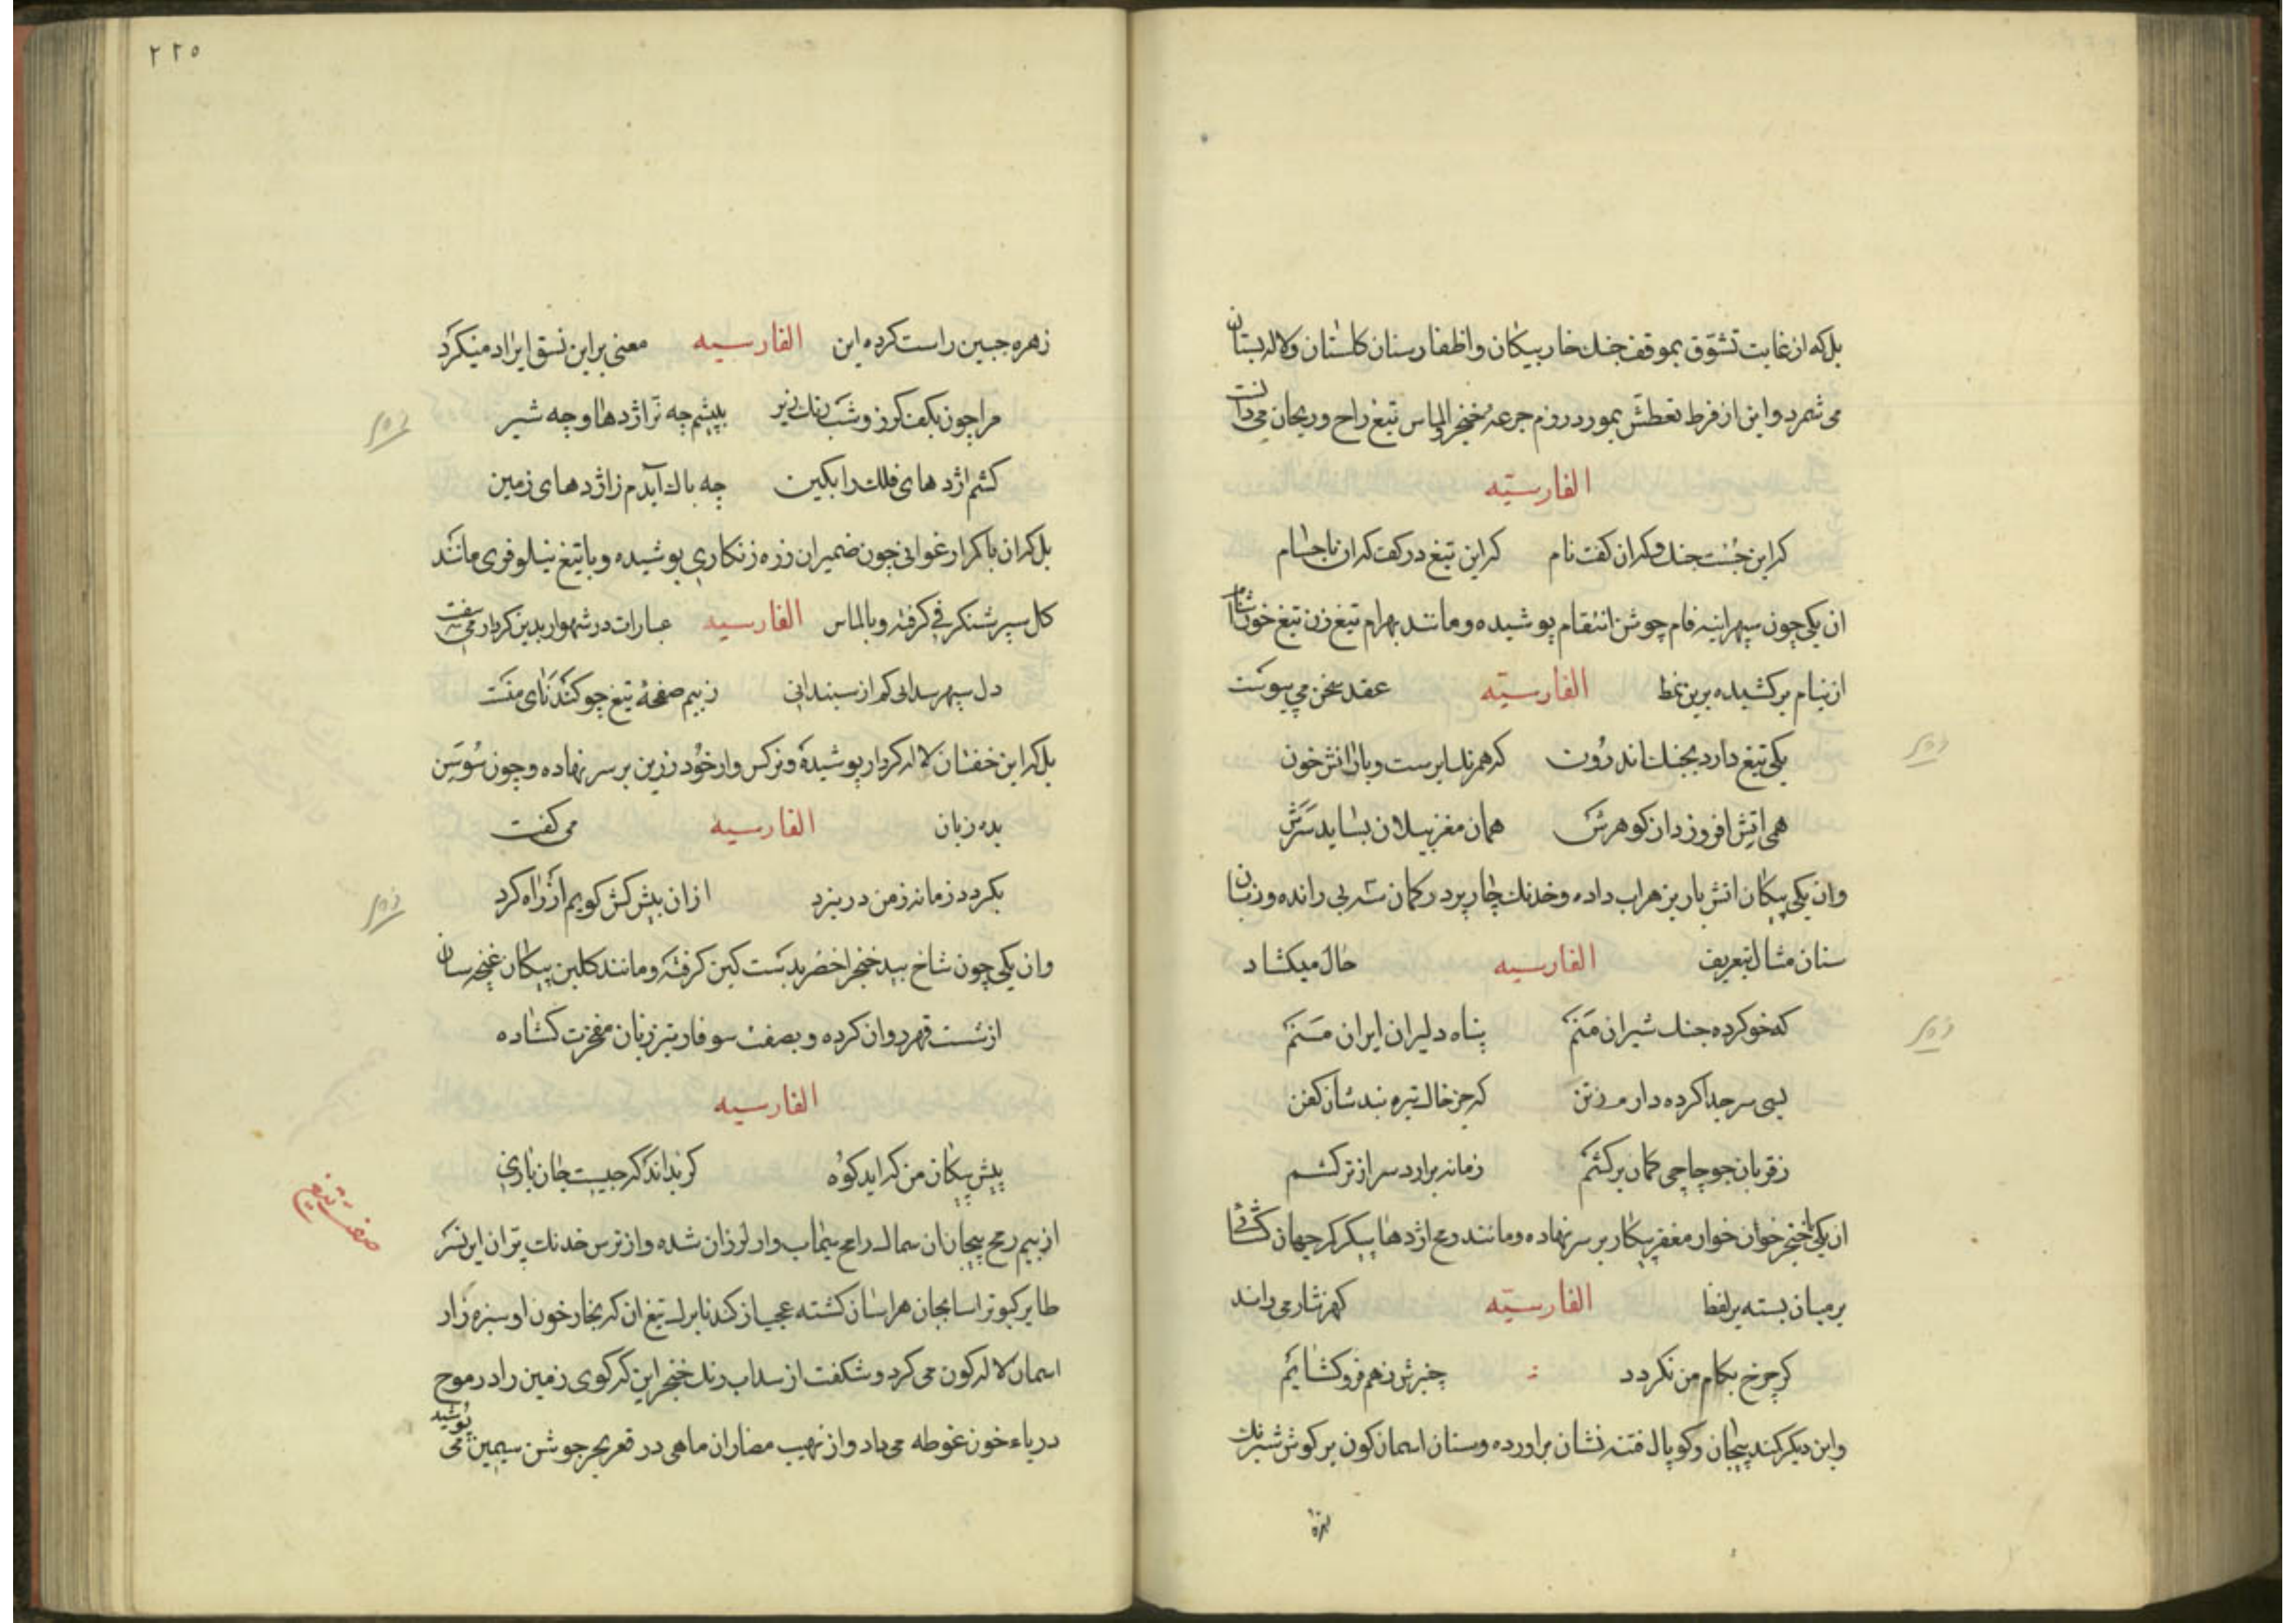 بل که از غایت تشوّق بموقف جنك خار پیکان و اظفار سنان کلستان و لاله بستان
می شمرد و این از فرط تعطّش بمورد رزم جرعهٔ خنجر الماس تیغ راح و ریحان می دانست
الفارسیّه
کر این جُست جنك و کر ان کفت نام کر این تیغ در کف کر ان با حسام
ان یکی چون سپهر اینه فام جوشن انتقام پوشیده و مانند بهرام تیغ زن تیغ خون اشام
از نیام بر کشیده برین نمط الفارسیّه عقد سخن می پیوست
یکی تیغ دارد بجنك اندرُون که همرنك ابرست و بارانش خون
همی اتش افروزد از کوهرش همان مغز پیلان بساید سَرَش
وان یکی پیکان اتش بار بزهراب داده و خدنك چار پر در کمان راندە و زبان
سنان مثال بتعریف الفارسیه حال میکشاد
که خو کرده جنك شیران مَنَم پناه دلیران ایران مَنَم
بسی سر جدا کرده دارم ز تن که جز خاك تیره نبدشان کفن
ز قربان چو چاچی کمان برکشم زمانه برارد سر از ترکشم
ان یکی خنجر خوان خوار مغفر پیکار بر سر نهاده و مانند رمح اژدها پیکر کمر جهان کشائی
بر میان بسته بر لفظ الفارسیّه کهر نثار می راند
کر چرخ بکام من نکردد چنبرش ز هم فرو کشایم
و این دیکر کمند پیچان و کوپال فتنه نشان براورده و سنان اسمان کون بر کوش شبرنك
زهره
٢٢٥
زهره جبین راست کرده این الفارسیه معنی براین نسق ایراد میکرد
مرا چون بکف کرز و شب رنك زیر بپیشم چه نر اژدها و چه شیر
کشم اژدهای فلك را بکین چه باك آیدم ز اژدهای زمین
بل کر ان با کمر ارغوانی چون ضمیران زره زنکاری پوشیده و با تیغ نیلوفری مانند
کل سپر شنکرفی کرفته و بالماس الفارسیه عبارات در شهوار بدین کردار می سفت
دل سپهر سدابی کم از سپندانی ز بیم صفحهٔ تیغ چو کندنای منست
بل کر این خفتان لاله کردار پوشیده و نرکس وار خُود زرین بر سر نهاده و چون سُوسَن
بده زبان الفارسیه می کفت
بکردد زمانه ز من در نبرد از ان پیش کش کویم از راه کرد
وان یکی چون شاخ بید خنجر اخضر بدست کین کرفته و مانند کلبن پیکان غنچه سان
از شست قهر روان کرده و بصفت سوفار تیر زبان مفخرت کشاده
الفارسیه
پیش پیکان من کر اید کوه کر بداند کر چیست جان بازی
از بیم رمح پیچان ان سماك رامح سیماب وار لرزان شده و از ترس خدنك پران این نسر
طایر کبوتر اسا بجان هراسان کشته عجب از کندنا برك تیغ ان که بخار خون او سبزه زار
اسمان لاله کون می کرد و شکفت از سداب رنك خنجر این کر کوی زمین را در موج
دریاء خون غوطه می داد و از نهیب مضار ان ماهی در قعر بحر جوشن سیمین می پوشید
صفت تیغ